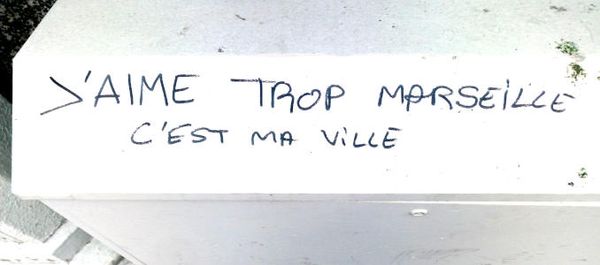 J'AIME TROP MARSEILLE
C'EST MA VILLE